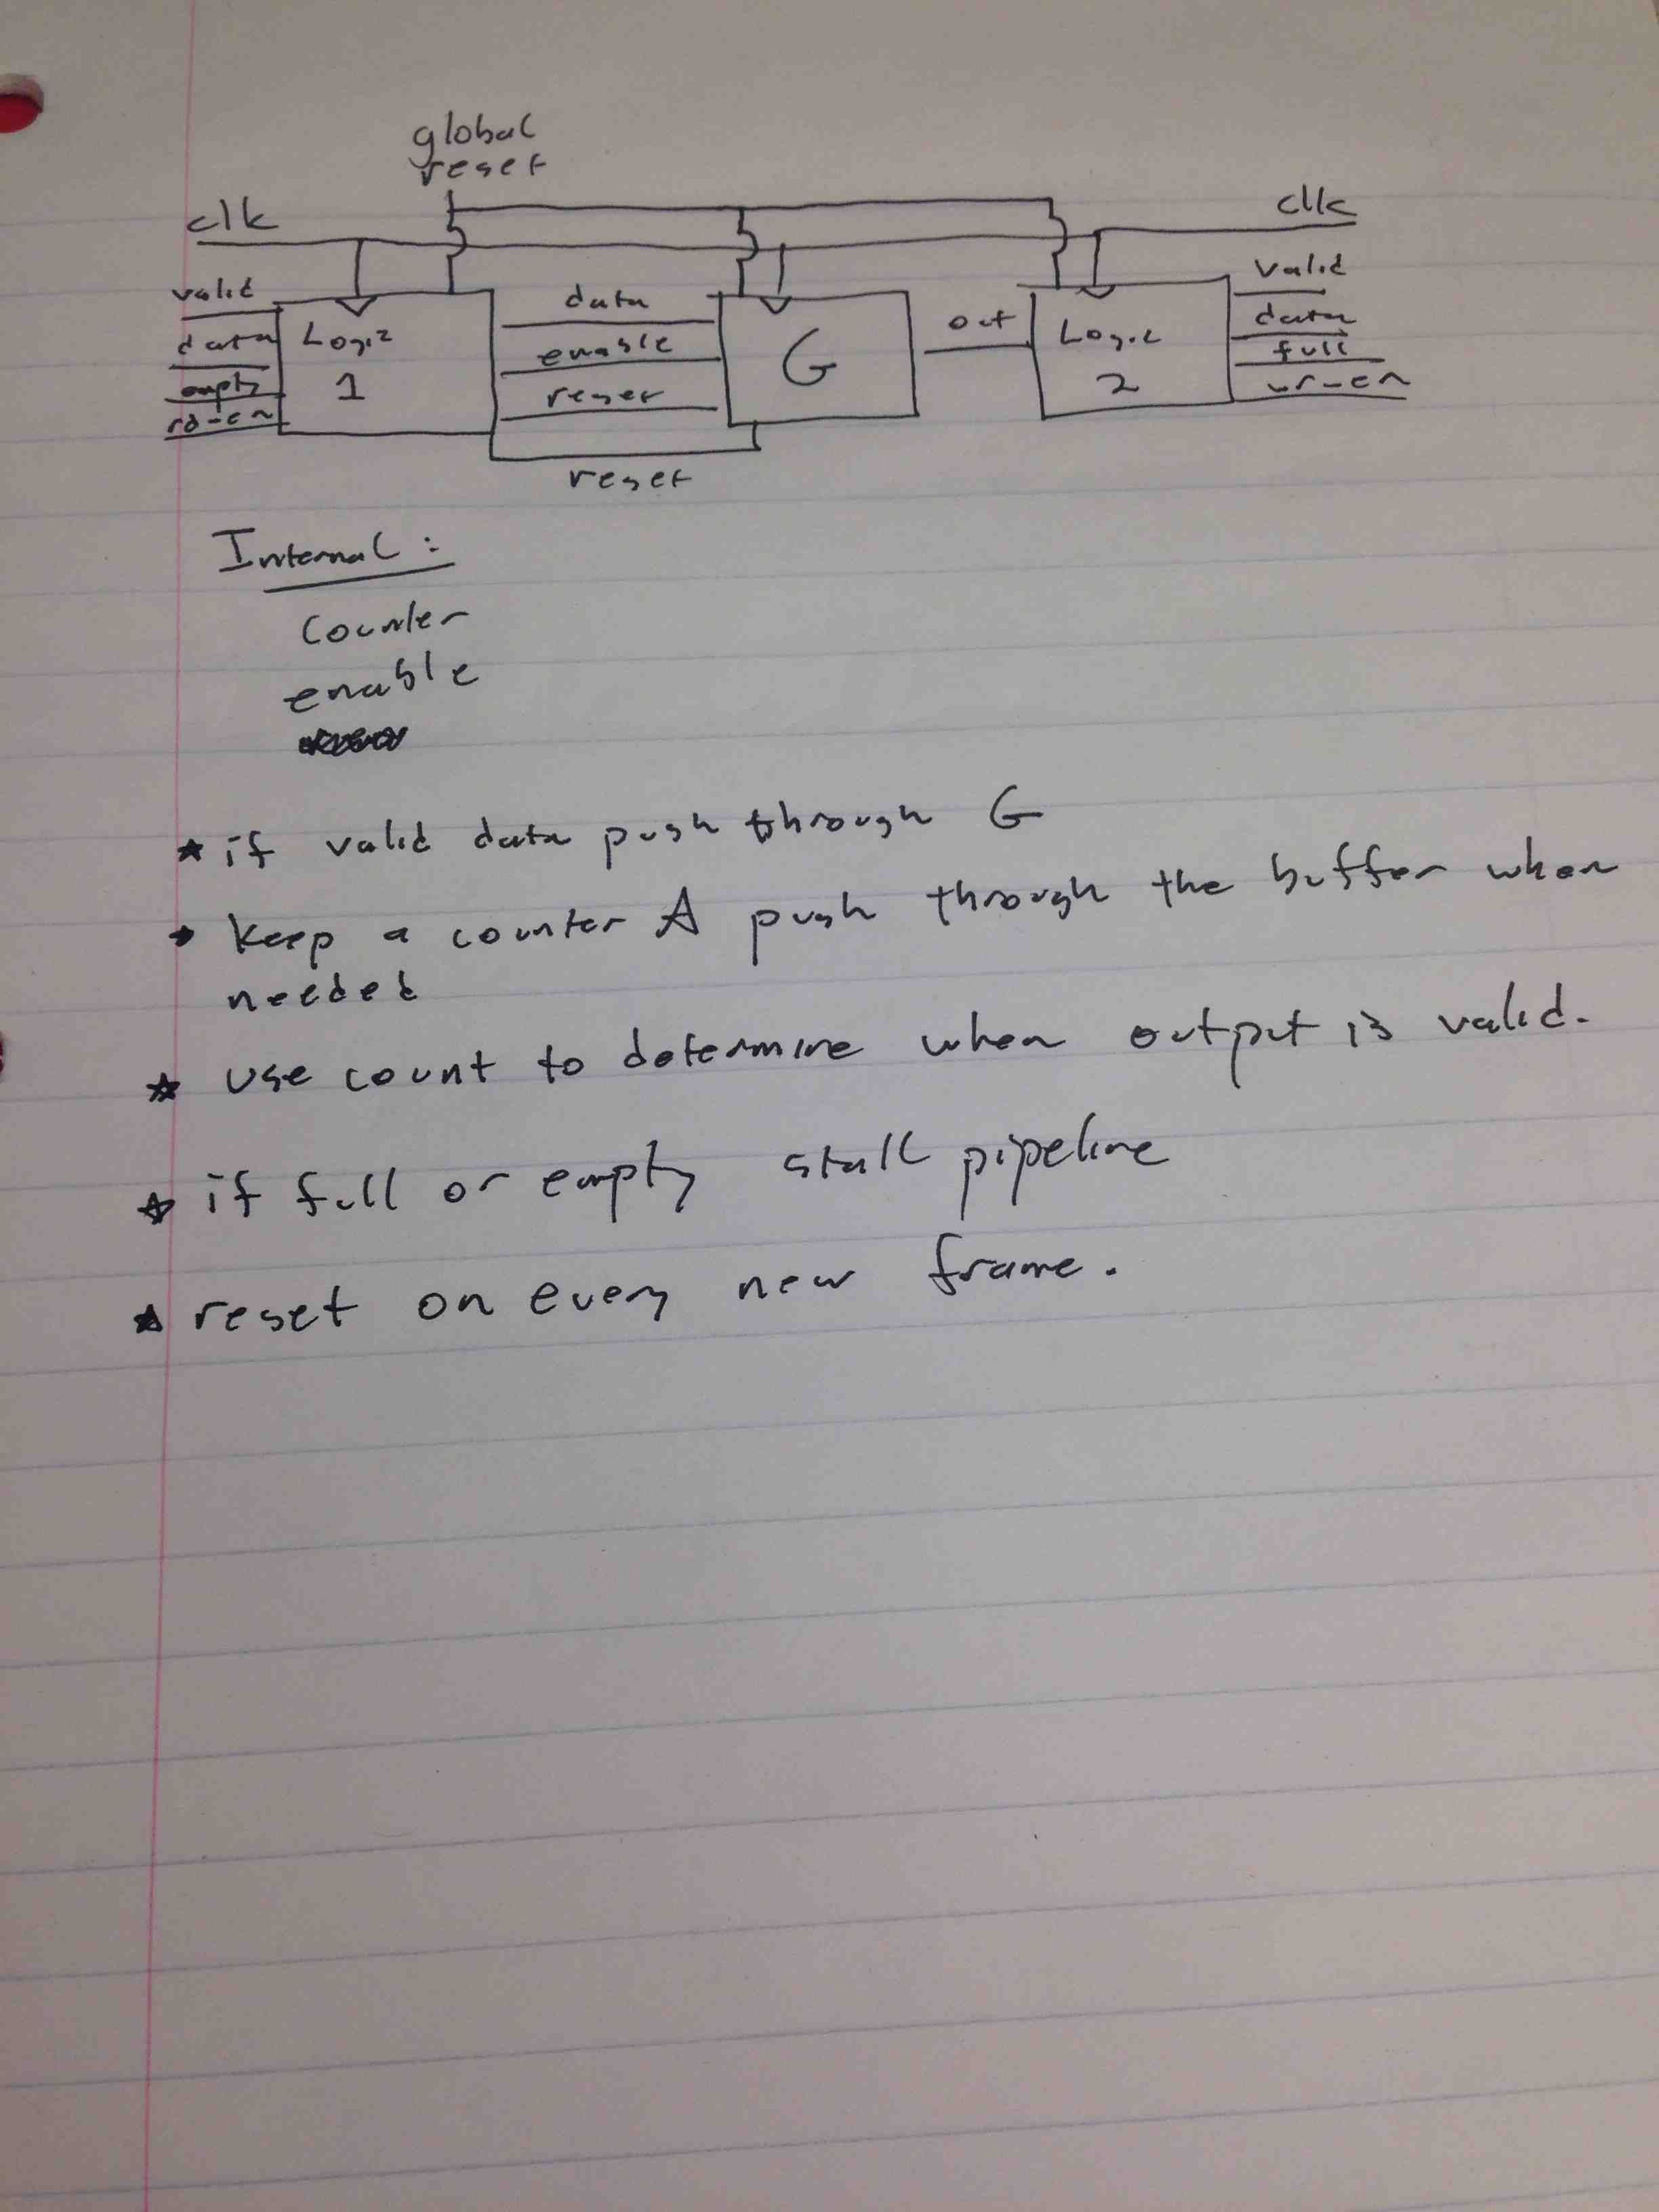 global
reset
clk
clk
valid
data
empty
rd-en
Logic
1
data
enable
reset
G
out
Logic
2
valid
data
full
wr-en
reset
Internal:
Counter
enable
* if valid data push through G
* keep a counter & push through the buffer when
needed
* use count to determine when output is valid.
* if full or empty stall pipeline
* reset on every new frame.